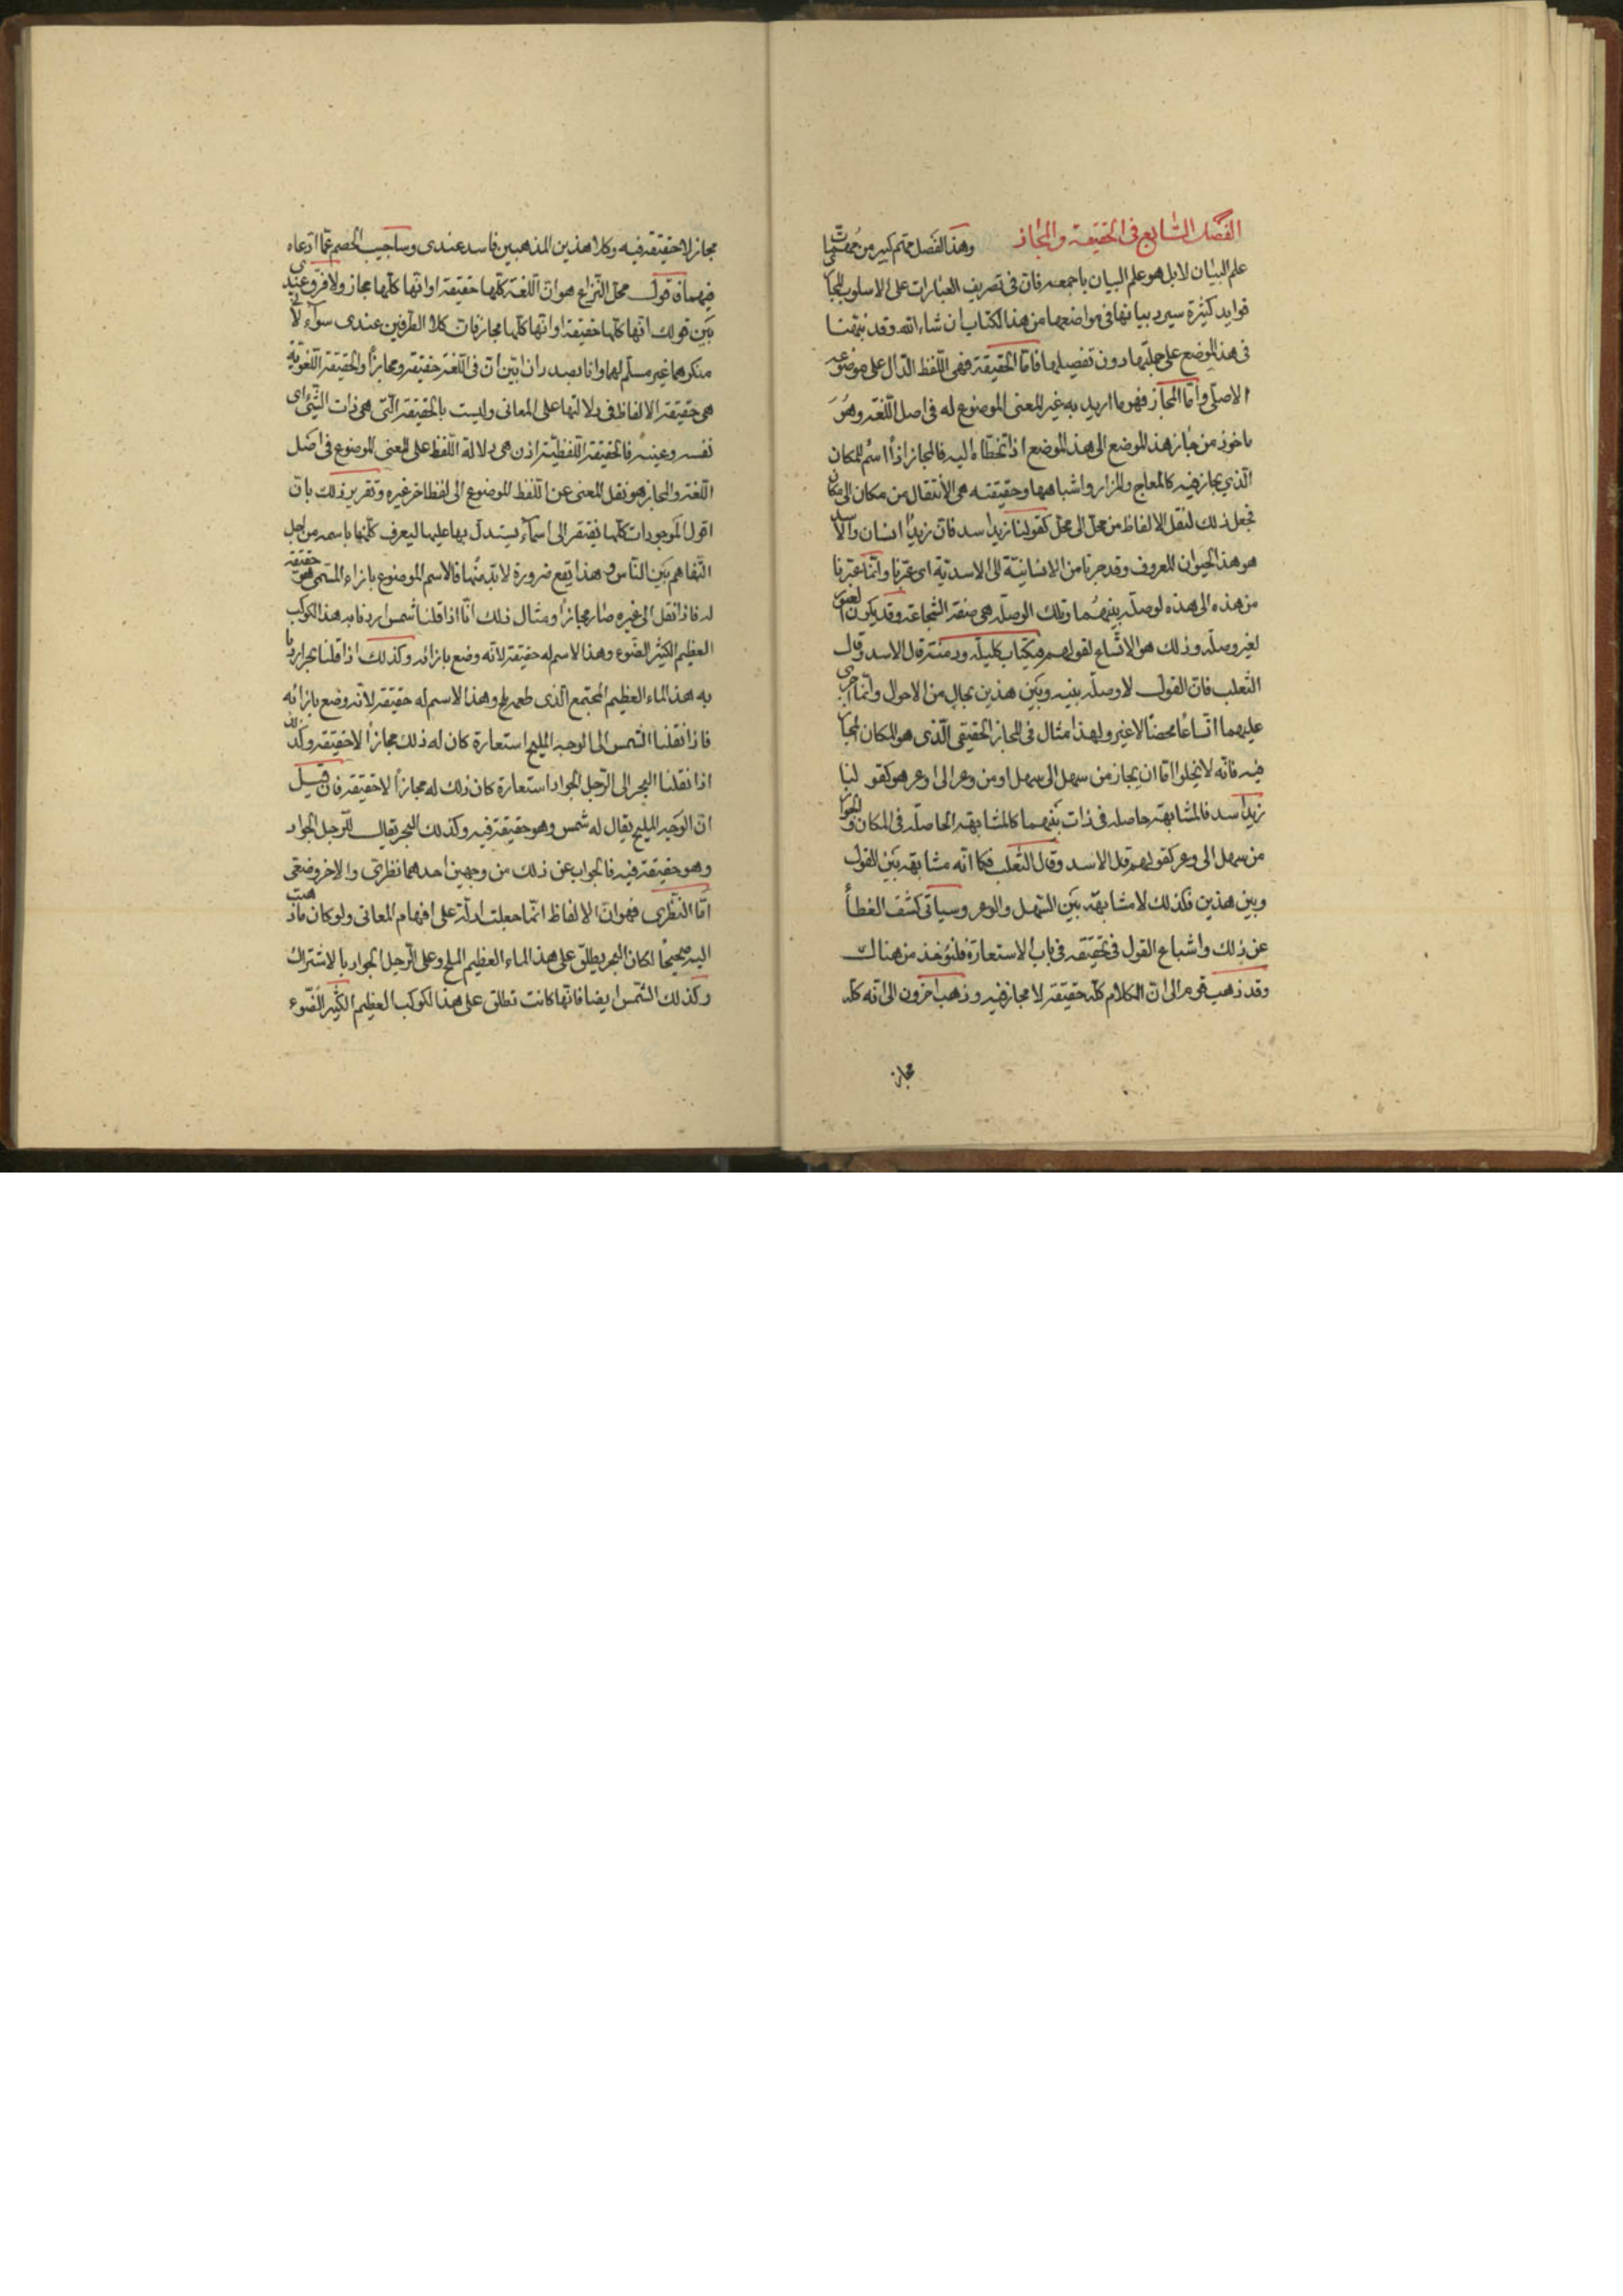 الفصل السابع في الحقيقة والمجاز وهذا الفصل مهم كبير من مهمات
علم البيان لا بل هو علم البيان باجمعه فان في تصريف العبارات على الاسلوب المجازي
فوايد كثيرة سيرد بيانها في مواضعها من هذا الكتاب ان شاء الله وقد نبهنا
في هذا الموضع على جملتها دون تفصيلها فاما الحقيقة فهي اللفظ الدال على موضوعه
الاصلي واما المجاز فهو ما اريد به غير المعنى الموضوع له في اصل اللغة وهو
ماخوذ من جاز هذا الموضع الى هذا الموضع اذا تخطاه اليه فالمجاز اذاً اسم للمكان
الذي يجاز فيه كالمعاج والمزار واشباهها وحقيقته هي الانتقال من مكان الى مكان
فجعل ذلك لنقل الالفاظ من محل الى محل كقولنا زيد اسد فان زيداً انسان والاسد
هو هذا الحيوان المعروف وقد جزنا من الانسانية الى الاسدية اى عبرنا وانما عبرنا
من هذه الى هذه لوصلة بينهما وتلك الوصلة هي صفة الشجاعة وقد يكون العبور
لغير وصلة وذلك هو الاتساع لقولهم في كتاب كليلة ودمنة قال الاسد وقال
الثعلب فان القول لا وصلة بينه وبين هذين بحال من الاحوال وانما اجرى
عليهما اتساعًا محضًا لا غير ولهذا مثال في المجاز الحقيقي الذى هو المكان المجاز
فيه فانه لا يخلوا اما ان يجاز من سهل الى سهل او من وعر الى وعر هو كقو لنا
زيد اسد فالمشابهة حاصلة في ذات بينهما كالمشابهة الحاصلة في المكان والجواز
من سهل الى وعر كقولهم قال الاسد وقال الثعلب فكما انه مشابهة بين القول
وبين هذين فكذلك لا مشابهة بين السهل والوعر وسياتى كشف الغطاء
عن ذلك واشباع القول في تحقيقه في باب الاستعارة فليؤخذ من هناك
وقد ذهب قوم الى ان الكلام كله حقيقة لا مجاز فيه وذهب اخرون الى انه كله
مجاز
مجاز لا حقيقة فيه وكلا هذين المذهبين فاسد عندى وساجيب الخصم عما ادعاه
فيهما فاقول محل النزاع هو ان اللغة كلها حقيقة او انها كلها مجاز ولا فرق عندى
بين قولك انها كلها حقيقة او انها كلها مجاز فان كلا الطرفين عندى سواء لان
منكرهما غير مسلم لهما وانا بصدر ان ابين ان في اللغة حقيقة ومجازاً والحقيقة اللغوية
هي حقيقة الالفاظ في دلالتها على المعانى وليست بالحقيقة التى هي ذات الشئ اى
نفسه وعينه فالحقيقة اللفظية اذن هي دلالة اللفظ على المعنى الموضوع في اصل
اللغة والمجاز هو نقل المعنى عن اللفظ الموضوع الى لفظ اخر غيره وتقرير ذلك بان
اقول الموجودات كلها تفتقر الى اسماء يستدل بها عليها ليعرف كل منها باسمه من اجل
التفاهم بين الناس وهذا يقع ضرورة لا بد منها فالاسم الموضوع بازاء المسمى هو حقيقة
له فاذا نقل الى غيره صار مجازاً ومثال ذلك انا اذا قلنا شمس اردنا به هذا الكوكب
العظيم الكثير الضوء وهذا الاسم له حقيقة لانه وضع بازائه وكذلك اذا قلنا بحر اردنا
به هذا الماء العظيم المجتمع الذى طعمه ملح وهذا الاسم له حقيقة لانه وضع بازائه
فاذا نقلنا الشمس الى الوجه المليح استعارة كان له ذلك مجازاً لا حقيقة وكذلك
اذا نقلنا البحر الى الرجل الجواد استعارة كان ذلك له مجازاً لا حقيقة فان قيل
ان الوجه المليح يقال له شمس وهو حقيقة فيه وكذلك البحر يقال للرجل الجواد
وهو حقيقة فيه فالجواب عن ذلك من وجهين احدهما نظرى والاخر وضعى
اما النظرى فهو ان الالفاظ انما جعلت ادلة على افهام المعانى ولو كان ما ذهبت
اليه صحيحًا لكان البحر يطلق على هذا الماء العظيم الملح وعلى الرجل الجواد بالاشتراك
وكذلك الشمس ايضا فانها كانت تطلق على هذا الكوكب العظيم الكثير الضوء